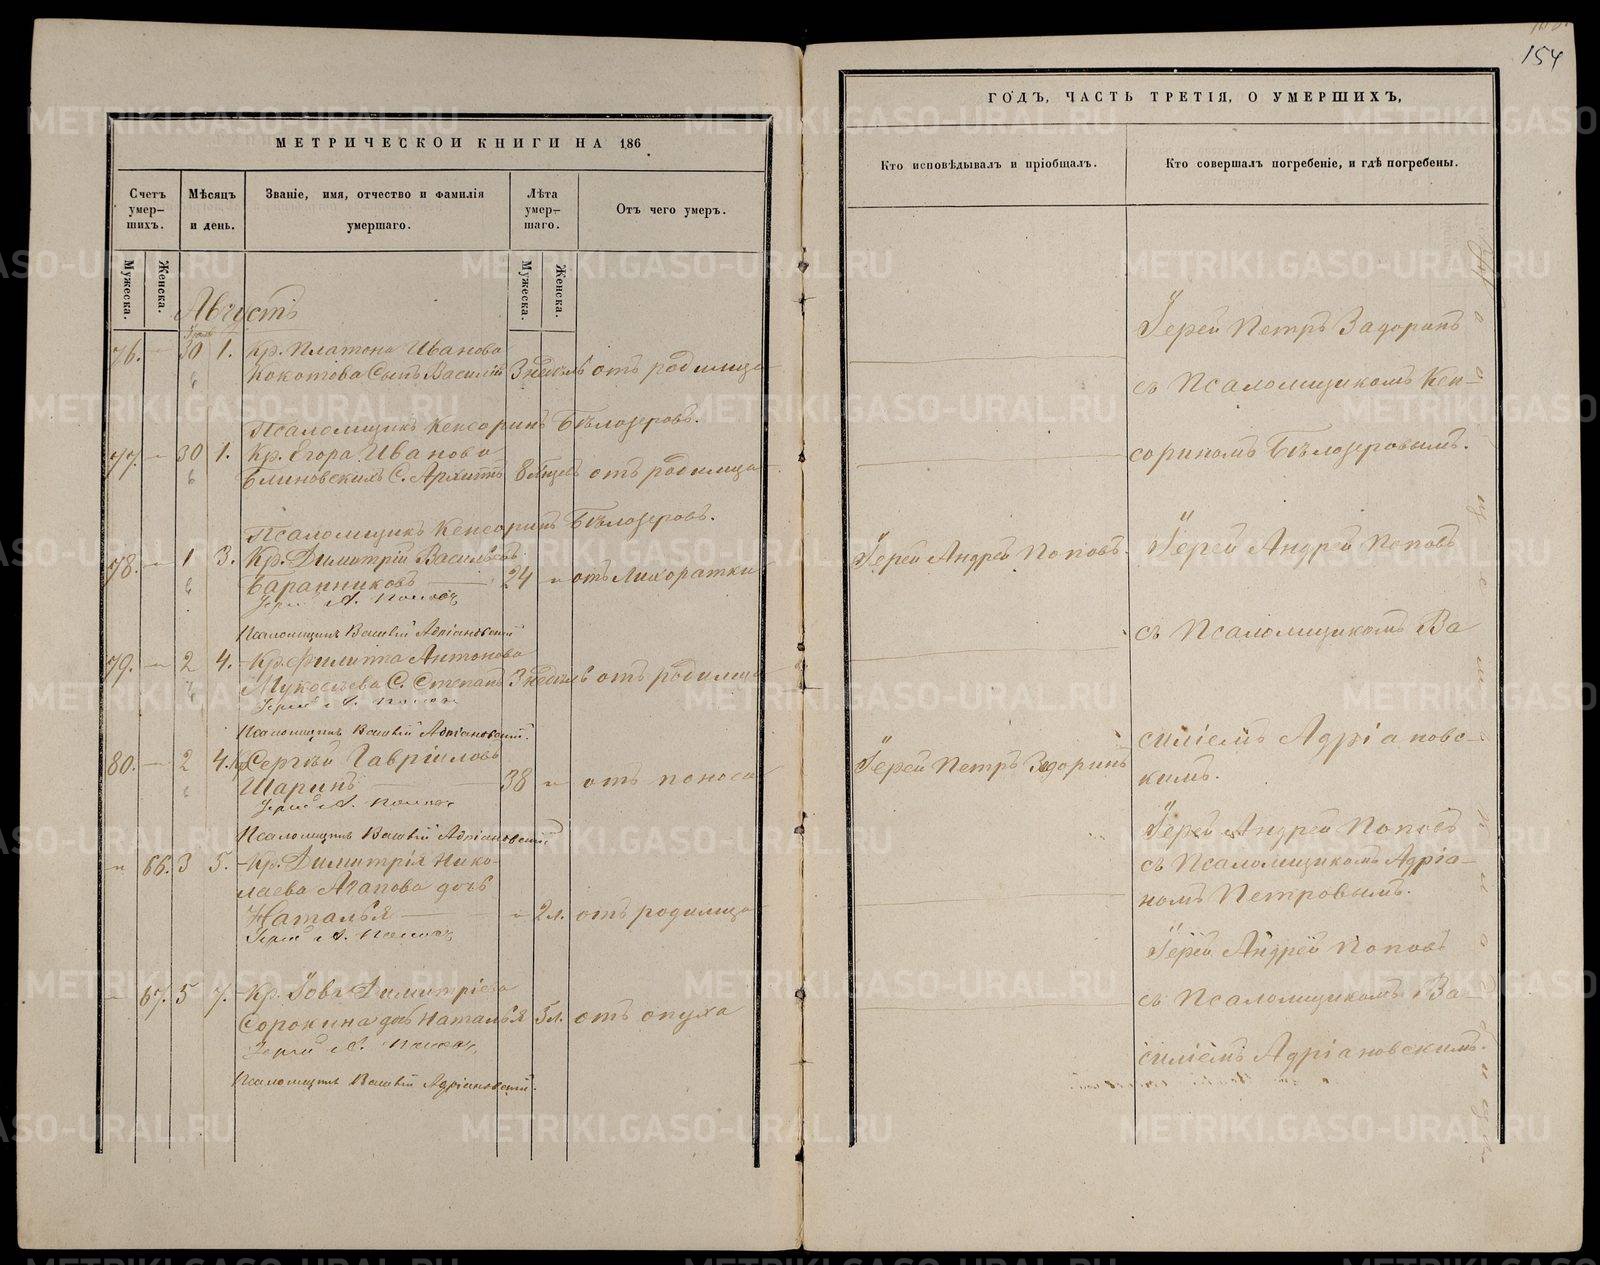 154
МЕТРИЧЕСКОЙ КНИГИ НА 186
ГОДЪ, ЧАСТЬ ТРЕТІЯ, О УМЕРШИХЪ,
Счетъ умер-шихъ.
Мѣсяцъ и день.
Званіе, имя, отчество и фамилія умершаго.
Лѣта умер-шаго.
Отъ чего умеръ.
Кто исповѣдывалъ и пріобщалъ.
Кто совершалъ погребеніе, и гдѣ погребены.
Мужеска.
Женска.
Мужеска.
Женска.
Августъ
76. — 30 1. Кр. Платона Иванова
Кокотова Сынъ Василій 3 недѣль отъ родимца
Псаломщикъ Кенсоринъ Бѣлозеровъ.
77. — 30 1. Кр. Егора Иванова
Блиновскихъ С. Архиппъ 8 мѣсяц. отъ родимца
Псаломщикъ Кенсоринъ Бѣлозеровъ.
78. — 1 3. Кр. Димитрій Васильевъ
Баранниковъ — 24 " отъ лихоратки
Іерей А. Поповъ
Псаломщикъ Василій Адріановскій
79. — 2 4. Кр. Филиппа Антонова
Мукосѣева С. Степанъ 3 недѣль отъ родимца
Іерей А. Поповъ
Псаломщикъ Василій Адріановскій.
80. — 2 4. Кр. Сергѣй Гавріиловъ
Шаринъ — 38 " отъ поноса
Іерей А. Поповъ
Псаломщикъ Василій Адріановскій
" 66. 3 5. Кр. Димитрія Нико-
лаева Агапова дочь
Наталья — " 2 л. отъ родимца
Іерей А. Поповъ
67. 5 7. Кр. Іова Димитріева
Сорокина дочь Наталья 5 л. отъ опуха
Іерей А. Поповъ
Псаломщикъ Василій Адріановскій.
Іерей Андрей Поповъ.
Іерей Петръ Задоринъ
Іерей Петръ Задоринъ
съ Псаломщикомъ Кен-
сориномъ Бѣлозеровымъ.
Іерей Андрей Поповъ
съ Псаломщикомъ Ва
силіемъ Адріановс-
кимъ.
Іерей Андрей Поповъ
съ Псаломщикомъ Адріа-
номъ Петровымъ.
Іерей Андрей Поповъ
съ Псаломщикомъ Ва-
силіемъ Адріановскимъ.
METRIKI.GASO-URAL.RU